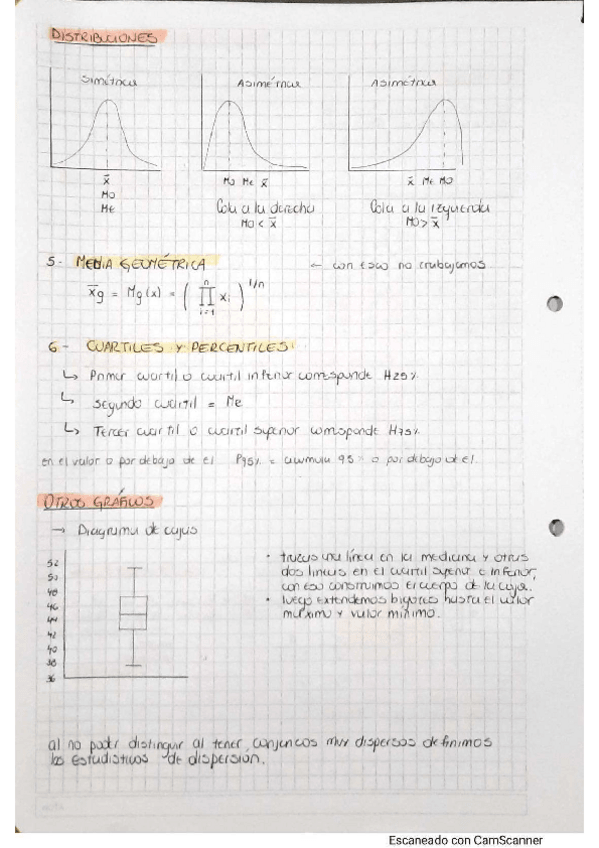 DISTRIBUCIONES
Simétrica
Asimétrica
Asimétrica
x̄
Mo
Me
Mo Me x̄
x̄ Me Mo
Cola a la derecha
Cola a la izquierda
Mo < x̄
Mo > x̄
5- MEDIA GEOMÉTRICA
← con esto no trabajamos
x̄g = Mg(x) = ( ∏ i=1 n xi )^1/n
6- CUARTILES Y PERCENTILES
↳ Primer cuartil o cuartil inferior corresponde H25%
↳ Segundo cuartil = Me
↳ Tercer cuartil o cuartil superior corresponde H75%
en el valor o por debajo de el P95% = acumula 95% o por debajo de el.
OTROS GRÁFICOS
→ Diagrama de cajas
52
50
48
46
44
42
40
38
36
• trazas una línea en la mediana y otras
dos lineas en el cuartil superior e inferior,
con eso construimos el cuerpo de la caja.
• luego extendemos bigotes hasta el valor
máximo y valor mínimo.
al no poder distinguir al tener conjuntos muy dispersos definimos
los estadísticos de dispersión.
Escaneado con CamScanner